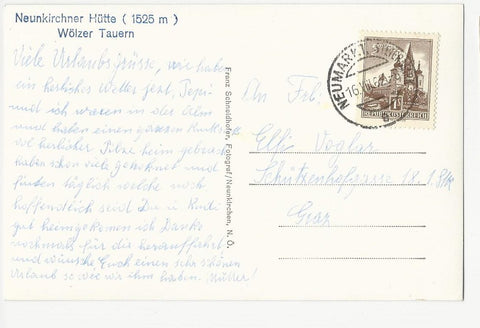 Neunkirchner Hütte ( 1525 m )
Wölzer Tauern
Viele Urlaubsgrüsse, wir haben
ein herliches Wetter jezt, Pepi
und ich waren in der Alm
und haben einen ganzen Rucksack
vol herlicher Pilze heim gebracht
haben schon viele getroknet und
finden täglich welche noch
hoffendlich seid Du u Rudi
gut heimgekomen ich Danke
nochmals für die herauffahrt
und wünsche Euch einen sehr schönen
Urlaub so wie wir ihn haben Mutter!
Franz Schneidhofer, Fotograf/Neunkirchen, N. Ö.
An Frl.
Elli Vogler
Schützenhofgasse 18.
Graz
NEUMARKT
REPUBLIK ÖSTERREICH